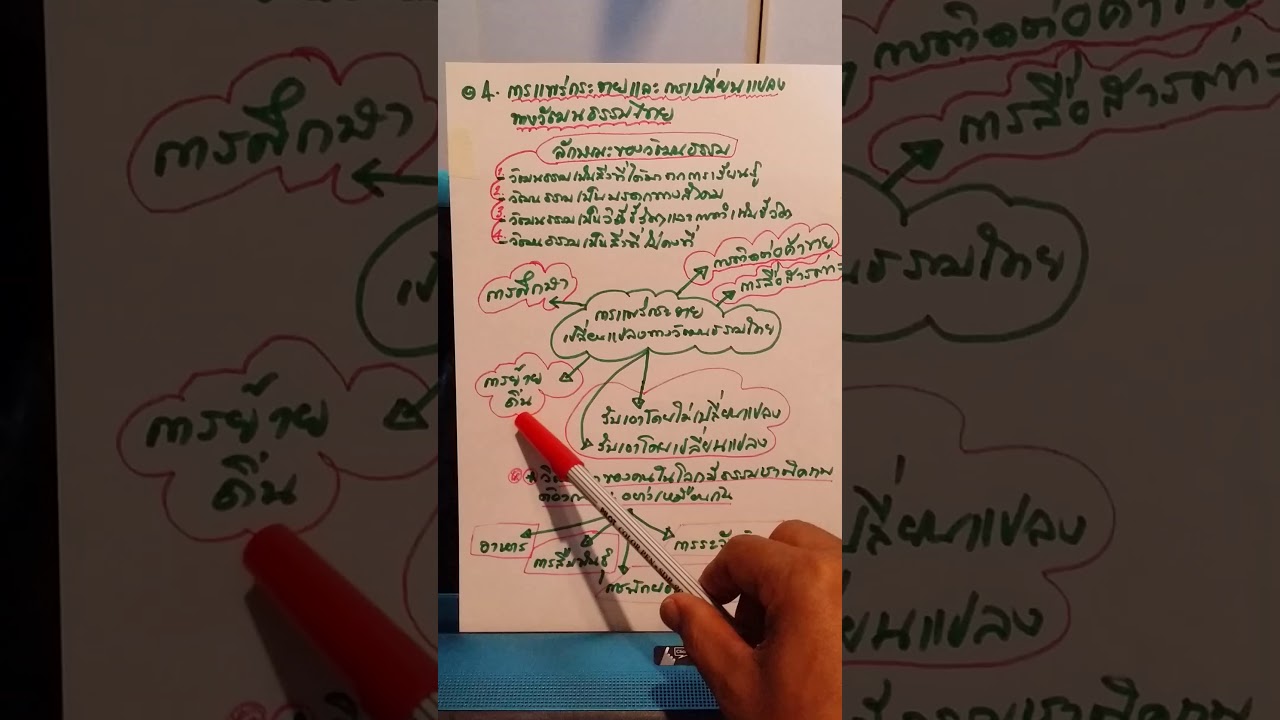 4. การแพร่กระจายและการเปลี่ยนแปลง
ทางวัฒนธรรมไทย
ลักษณะของวัฒนธรรม
1. - วัฒนธรรมเป็นสิ่งที่ได้มาจากการเรียนรู้
2. - วัฒนธรรมเป็นมรดกทางสังคม
3. - วัฒนธรรมเป็นวิถีชีวิตและการดำเนินชีวิต
4. - วัฒนธรรมเป็นสิ่งที่ไม่คงที่
การติดต่อค้าขาย
การสื่อสารต่าง
การศึกษา
การแพร่กระจาย
เปลี่ยนแปลงทางวัฒนธรรมไทย
การย้าย
ถิ่น
รับเอาโดยไม่เปลี่ยนแปลง
รับเอาโดยเปลี่ยนแปลง
ของคนในโลกมีธรรมชาติความ
อย่างเหมือนกัน
อาหาร
การสืบพันธุ์